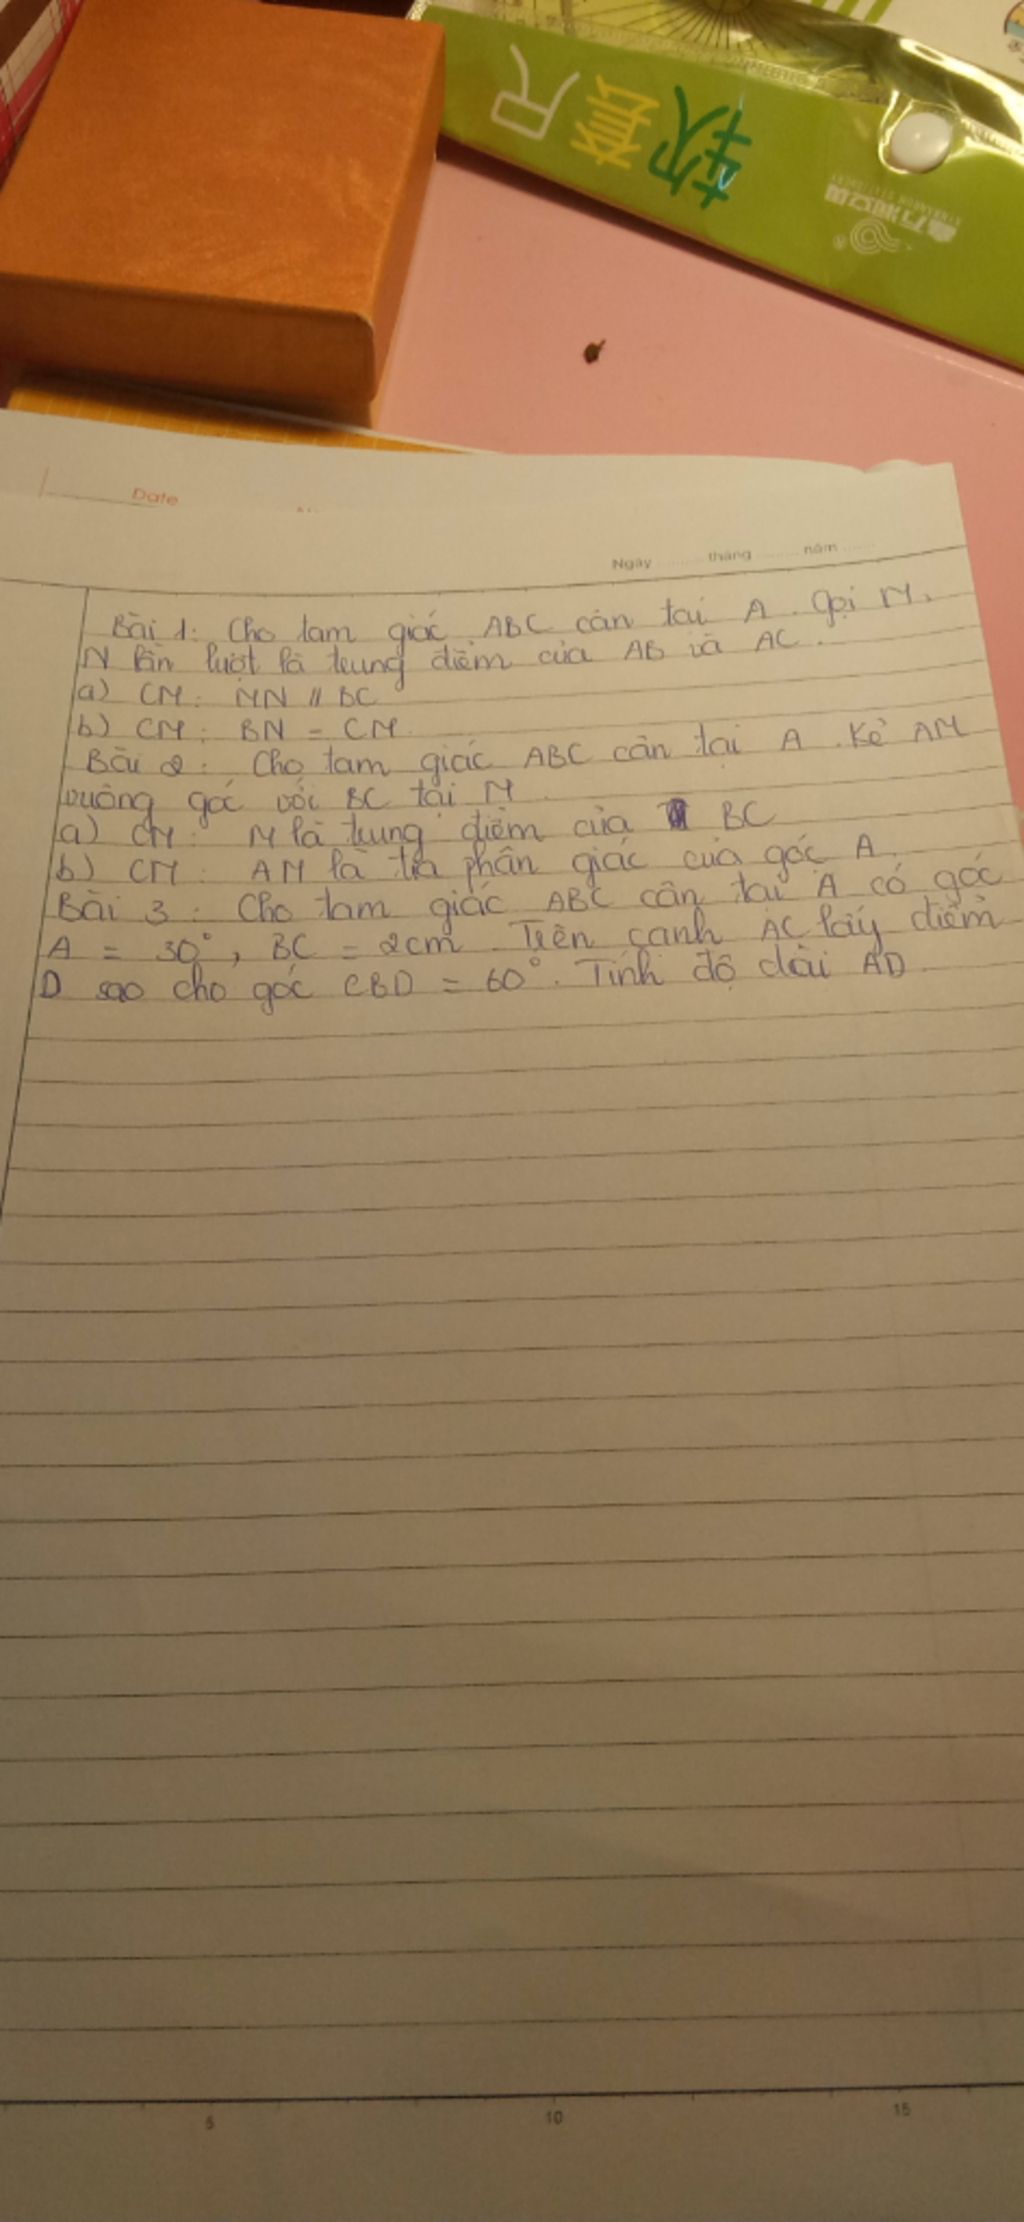 软套尺
Date
Ngày ......... tháng ......... năm .........
Bài 1: Cho tam giác ABC cân tại A. Gọi M,
N lần lượt là trung điểm của AB và AC.
a) CM: MN // BC
b) CM: BN = CM.
Bài 2: Cho tam giác ABC cân tại A. Kẻ AM
vuông góc với BC tại M.
a) CM: M là trung điểm của BC
b) CM: AM là tia phân giác của góc A.
Bài 3: Cho tam giác ABC cân tại A có góc
A = 30°, BC = 2cm. Trên cạnh AC lấy điểm
D sao cho góc CBD = 60°. Tính độ dài AD.
5 10 15